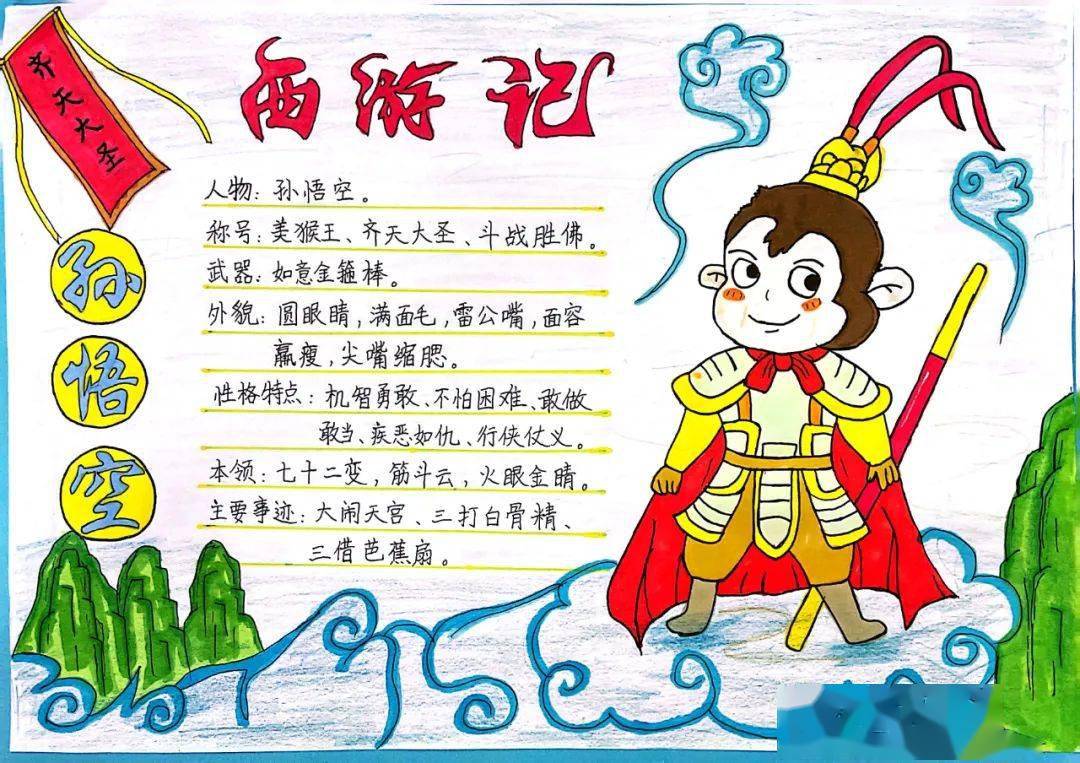 齐天大圣
西游记
孙悟空
人物：孙悟空。
称号：美猴王、齐天大圣、斗战胜佛。
武器：如意金箍棒。
外貌：圆眼睛，满面毛，雷公嘴，面容
羸瘦，尖嘴缩腮。
性格特点：机智勇敢、不怕困难、敢做
敢当、疾恶如仇、行侠仗义。
本领：七十二变，筋斗云，火眼金睛。
主要事迹：大闹天宫、三打白骨精、
三借芭蕉扇。